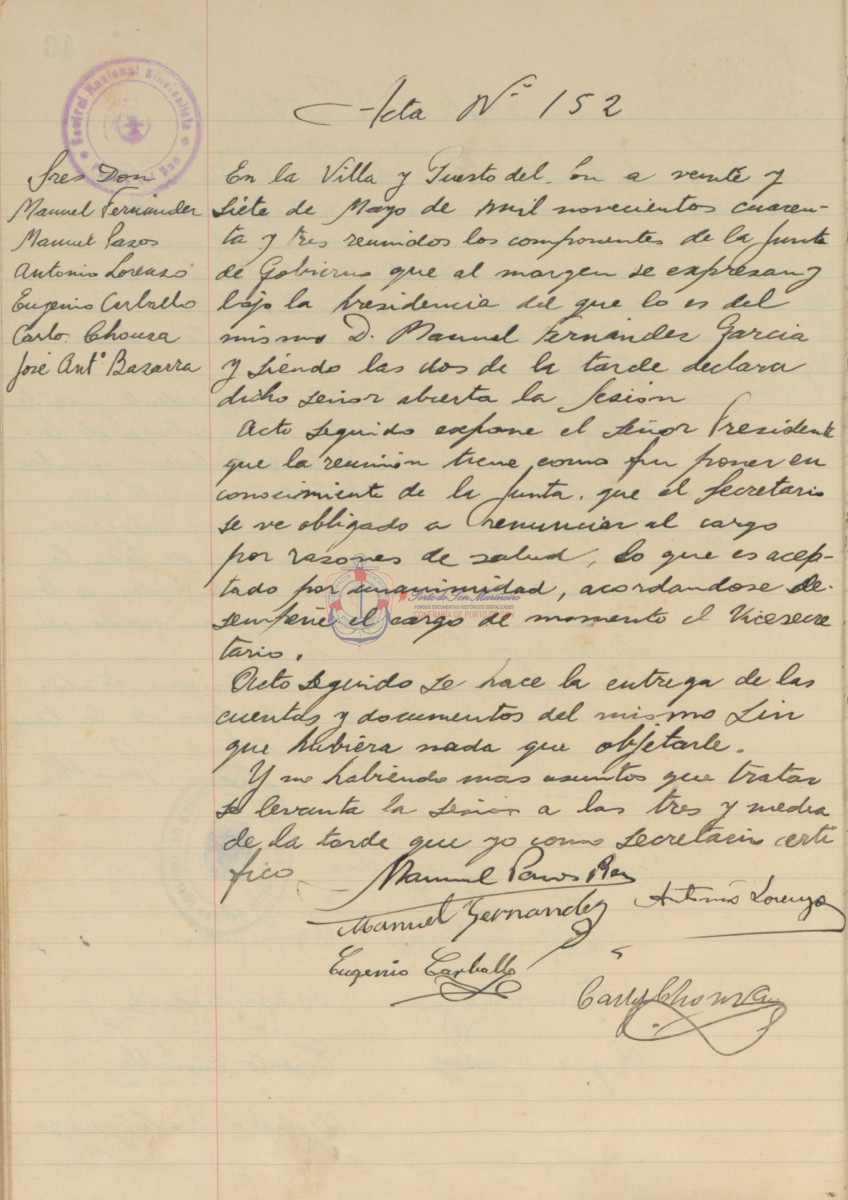 Acta Nº 152
Central Nacional Sindicalista
Sres Don
Manuel Fernández
Manuel Pazos
Antonio Lorenzo
Eugenio Carballo
Carlos Chouza
José Antº Bazarra
En la Villa y Puerto del Son a veinte y
siete de Mayo de mil novecientos cuaren-
ta y tres reunidos los componentes de la Junta
de Gobierno que al margen se expresan y
bajo la Presidencia del que lo es del
mismo D. Manuel Fernández García
y siendo las dos de la tarde declara
dicho señor abierta la Sesión
Acto seguido expone el Señor Presidente
que la reunión tiene como fin poner en
conocimiento de la Junta, que el Secretario
se ve obligado a renunciar al cargo
por razones de salud, lo que es acep-
tado por unanimidad, acordandose de-
sempeñe el cargo de momento el Vicesecre
tario.
Acto seguido se hace la entrega de las
cuentas y documentos del mismo sin
que hubiera nada que objetarle.
Y no habiendo mas asuntos que tratar
se levanta la sesión a las tres y media
de la tarde que yo como secretario certi
fico
Manuel Pazos
Manuel Fernandez
Antonio Lorenzo
Eugenio Carballo
Carlos Chouza
#Porto do Son Marineiro
FONDOS DOCUMENTAIS HISTÓRICOS DIXITALIZADOS
CONFRARÍA DE PORTO DO SON